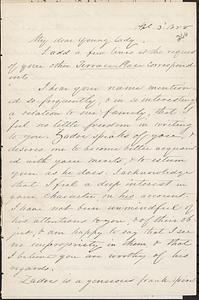 My dear Young Lady,
I add a few lines at the request
of your other Terrace Place correspond
ents
I hear your name mention
ed so frequently, & in so interesting
a relation to our family, that I
feel no little freedom in writing
to you. Zadoc speaks of you &
desires me to become better acquaint
ed with your merits, & to esteem
you as he does. I acknowledge
that I feel a deep interest in
your character in his account
I have not been unmindful of
his attentions to you & of their ob
ject, & am happy to say that I see
no impropriety in them & that
I believe you are worthy of his
regards.
Zadoc is a generous frank spir